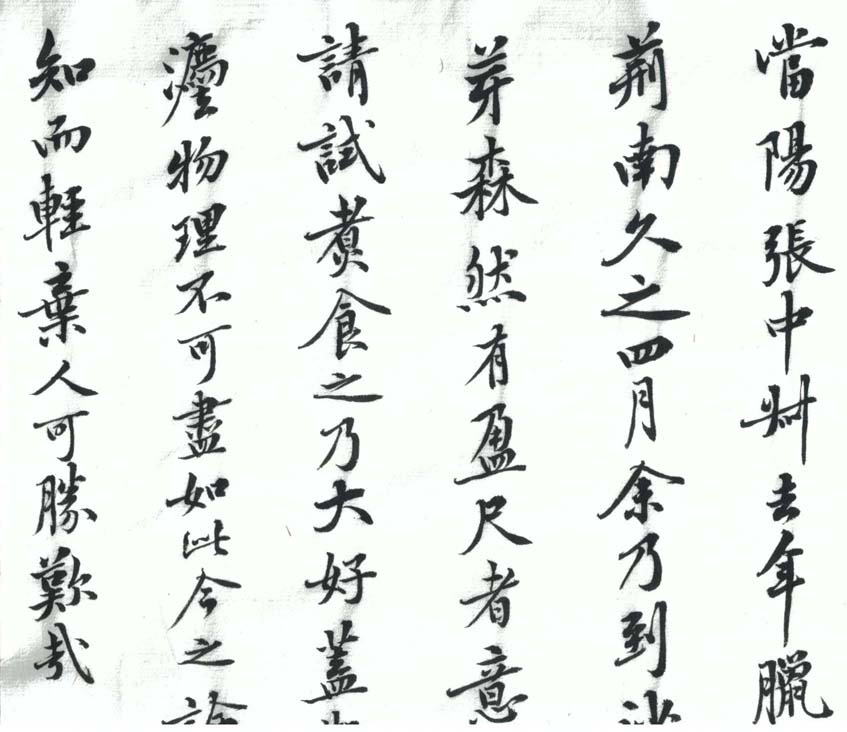 當陽張中叔去年臘
荊南久之四月余乃到
芽森然有盈尺者意
請試煮食之乃大好蓋
物理不可盡如此今之
知而輕棄人可勝歎哉